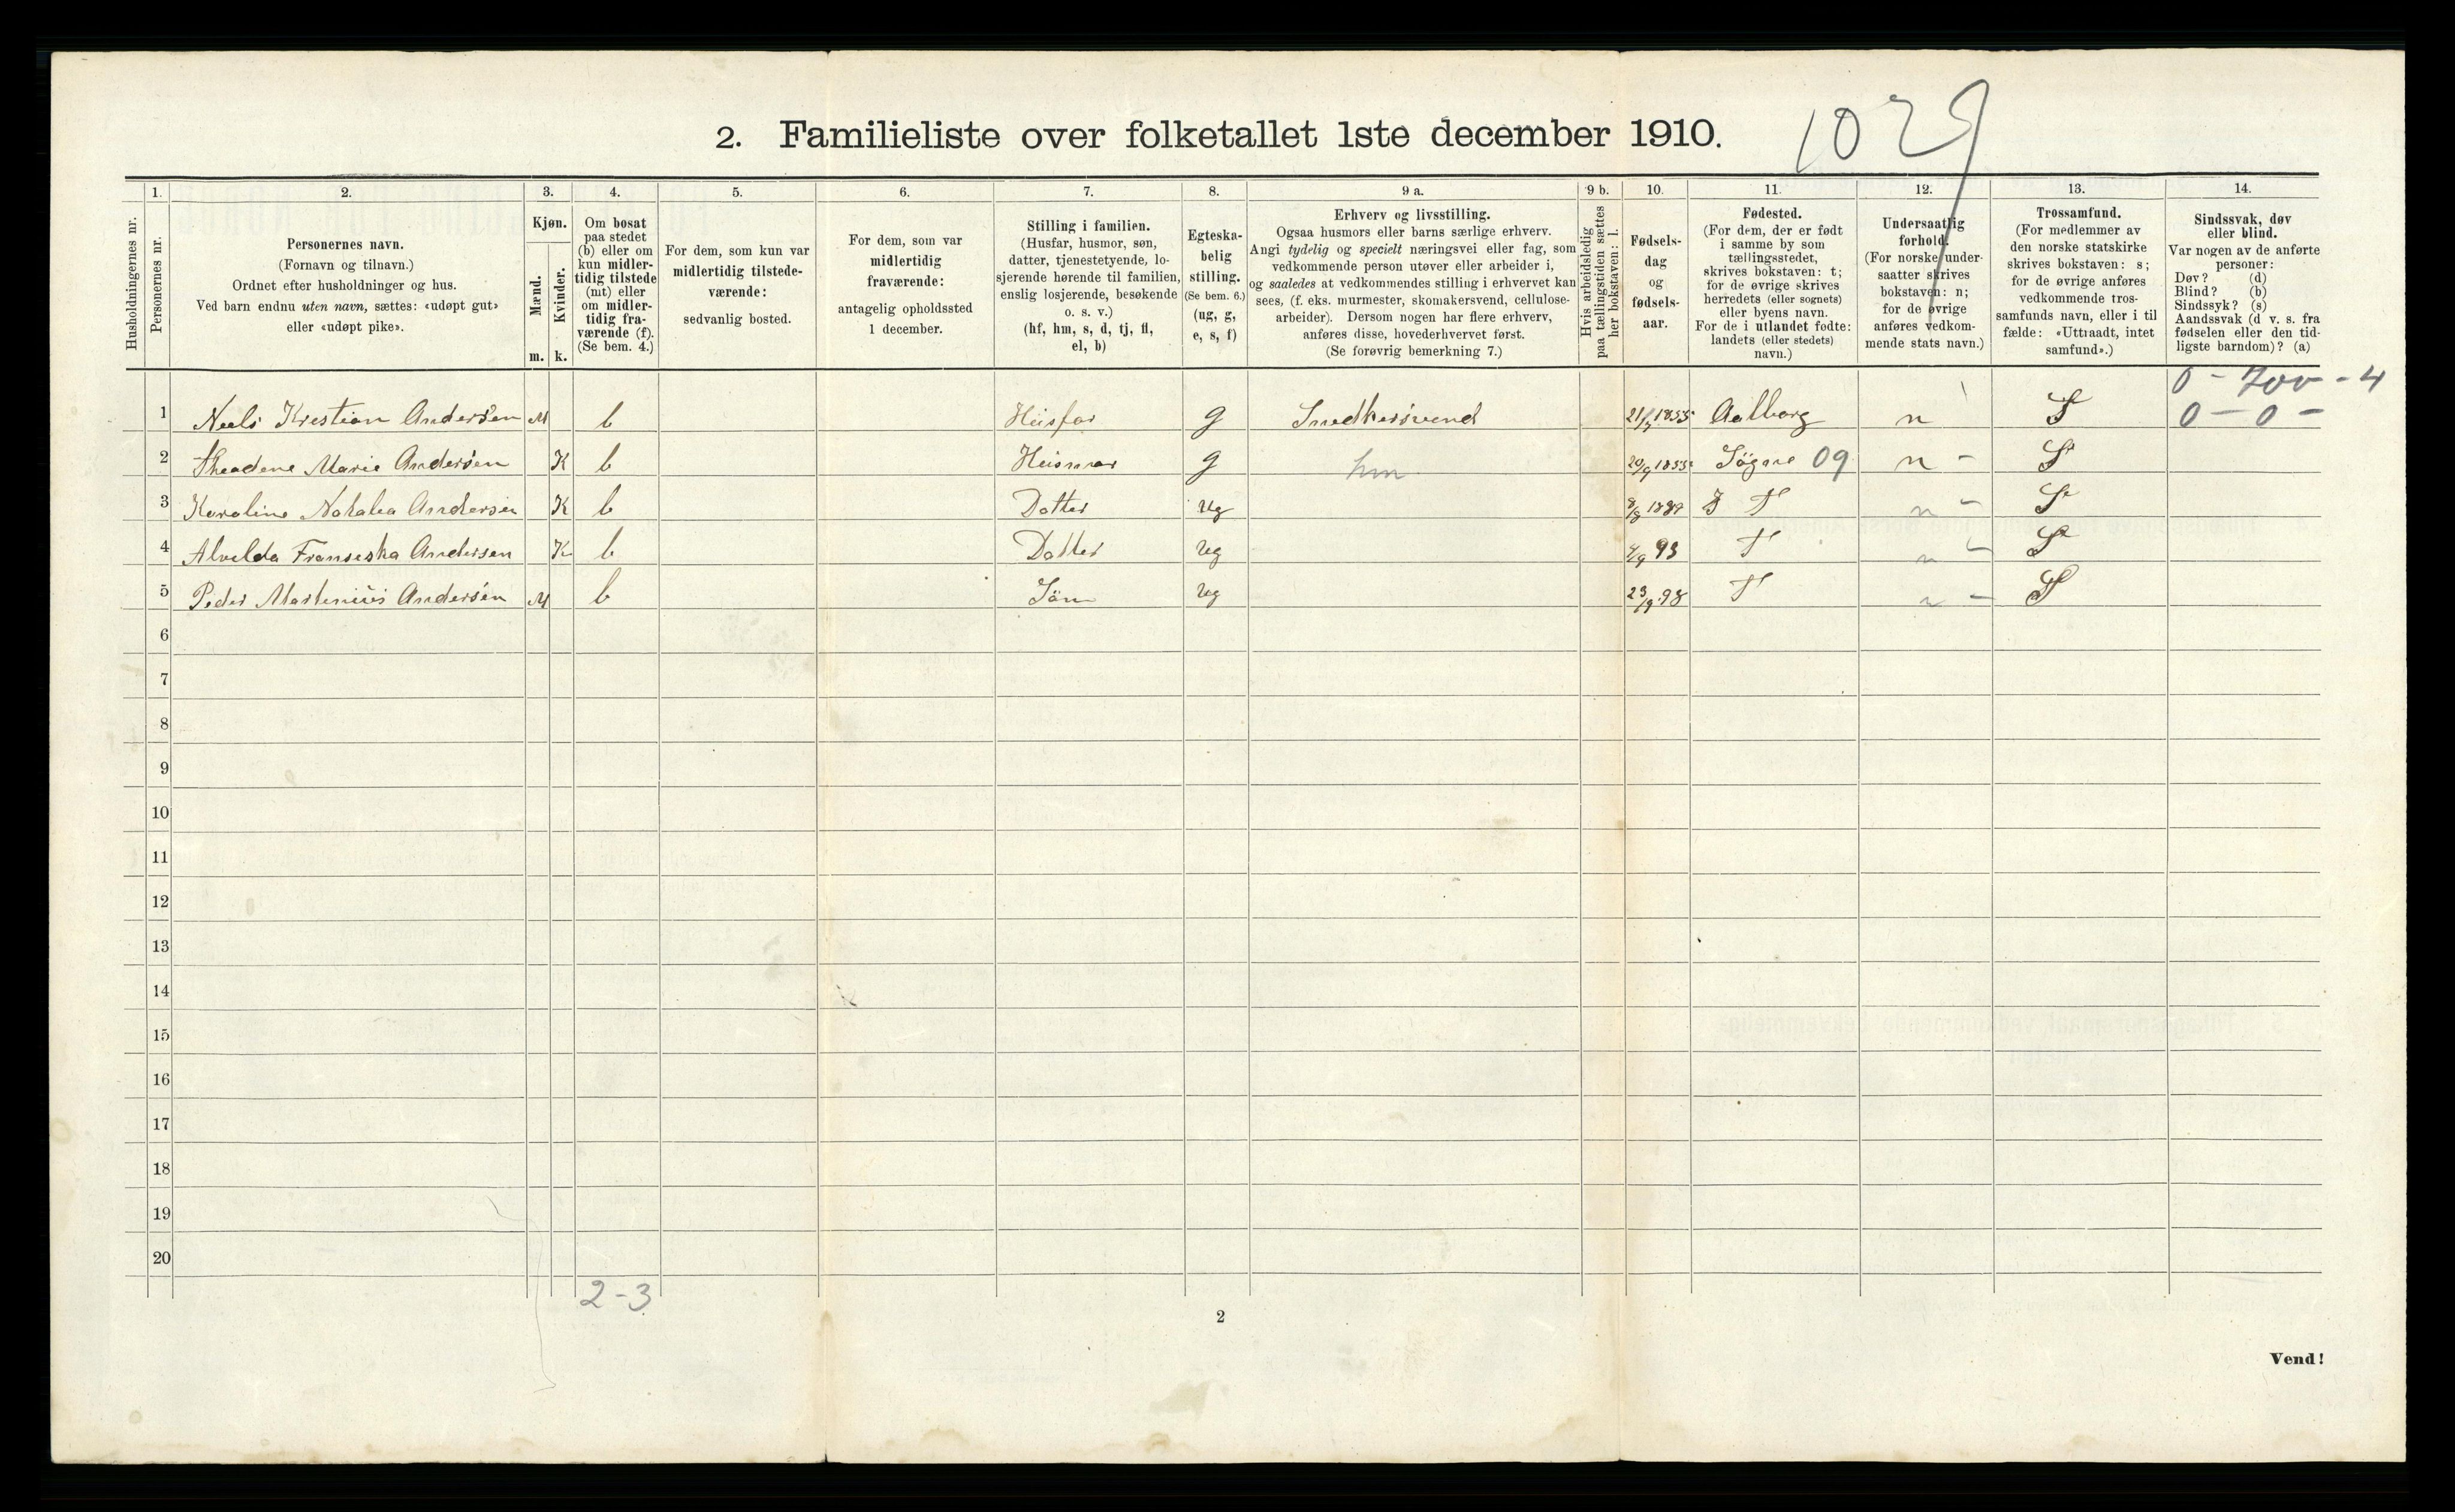 1029
2. Familieliste over folketallet 1ste december 1910.
1. 2. 3. 4. 5. 6. 7. 8. 9 a. 9 b. 10. 11. 12. 13. 14.
Husholdningernes nr.
Personernes nr.
Personernes navn.
(Fornavn og tilnavn.)
Ordnet efter husholdninger og hus.
Ved barn endnu uten navn, sættes: «udøpt gut»
eller «udøpt pike».
Kjøn.
Mænd.
Kvinder.
m. k.
Om bosat
paa stedet
(b) eller om
kun midler-
tidig tilstede
(mt) eller
om midler-
tidig fra-
værende (f).
(Se bem. 4.)
For dem, som kun var
midlertidig tilstede-
værende:
sedvanlig bosted.
For dem, som var
midlertidig
fraværende:
antagelig opholdssted
1 december.
Stilling i familien.
(Husfar, husmor, søn,
datter, tjenestetyende, lo-
sjerende hørende til familien,
enslig losjerende, besøkende
o. s. v.)
(hf, hm, s, d, tj, fl,
el, b)
Egteska-
belig
stilling.
(Se bem. 6.)
(ug, g,
e, s, f)
Erhverv og livsstilling.
Ogsaa husmors eller barns særlige erhverv.
Angi tydelig og specielt næringsvei eller fag, som
vedkommende person utøver eller arbeider i,
og saaledes at vedkommendes stilling i erhvervet kan
sees, (f. eks. murmester, skomakersvend, cellulose-
arbeider). Dersom nogen har flere erhverv,
anføres disse, hovederhvervet først.
(Se forøvrig bemerkning 7.)
Hvis arbeidsledig
paa tællingstiden sættes
her bokstaven: l.
Fødsels-
dag
og
fødsels-
aar.
Fødested.
(For dem, der er født
i samme by som
tællingsstedet,
skrives bokstaven: t;
for de øvrige skrives
herredets (eller sognets)
eller byens navn.
For de i utlandet fødte:
landets (eller stedets)
navn.)
Undersaatlig
forhold.
(For norske under-
saatter skrives
bokstaven: n;
for de øvrige
anføres vedkom-
mende stats navn.)
Trossamfund.
(For medlemmer av
den norske statskirke
skrives bokstaven: s;
for de øvrige anføres
vedkommende tros-
samfunds navn, eller i til
fælde: «Uttraadt, intet
samfund».)
Sindssvak, døv
eller blind.
Var nogen av de anførte
personer:
Døv? (d)
Blind? (b)
Sindssyk? (s)
Aandssvak (d v. s. fra
fødselen eller den tid-
ligste barndom)? (a)
0 - 700 - 4
1 Neels Krestian Andersen M b Husfar g Snedkersvend 1855 Aalborg n S 0 - 0 -
2 Theadene Marie Andersen K b Husmor g hm 20/9 1855 Sögne 09 n - S
3 Karoline Nataléa Andersen K b Datter ug T n - S
4 Alvilda Franseska Andersen K b Datter ug 4/9 93 T n - S
5 Peder Martenius Andersen M b Sön ug 23/9 98 T n - S
6
7
8
9
10
11
12
13
14
15
16
17
18
19
20
2-3
2
Vend!